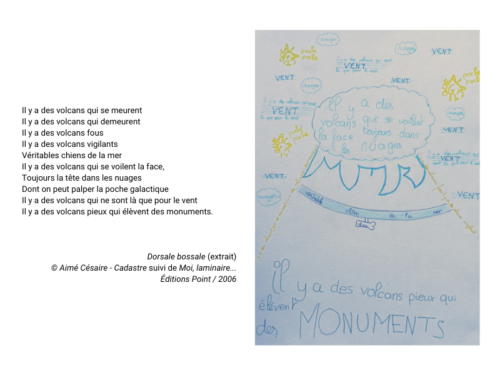 Il y a des volcans qui se meurent
Il y a des volcans qui demeurent
Il y a des volcans fous
Il y a des volcans vigilants
Véritables chiens de la mer
Il y a des volcans qui se voilent la face,
Toujours la tête dans les nuages
Dont on peut palper la poche galactique
Il y a des volcans qui ne sont là que pour le vent
Il y a des volcans pieux qui élèvent des monuments.
Dorsale bossale (extrait)
© Aimé Césaire - Cadastre suivi de Moi, laminaire...
Éditions Point / 2006
VENT
VENT
VENT
VENT
VENT
VENT
VENT
VENT
il y a des
volcans qui se voilent
la face toujours dans
les nuages
de la mer
il y a des volcans pieux qui
élèvent
des MONUMENTS